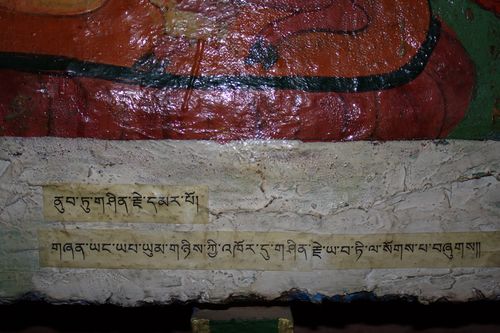 ནུབ་ཏུ་གཤིན་རྗེ་དམར་པོ།
གཞན་ཡང་ཡབ་ཡུམ་གཉིས་ཀྱི་འཁོར་དུ་གཤིན་རྗེ་ཡ་བ་ཏི་ལ་སོགས་པ་བཞུགས།།